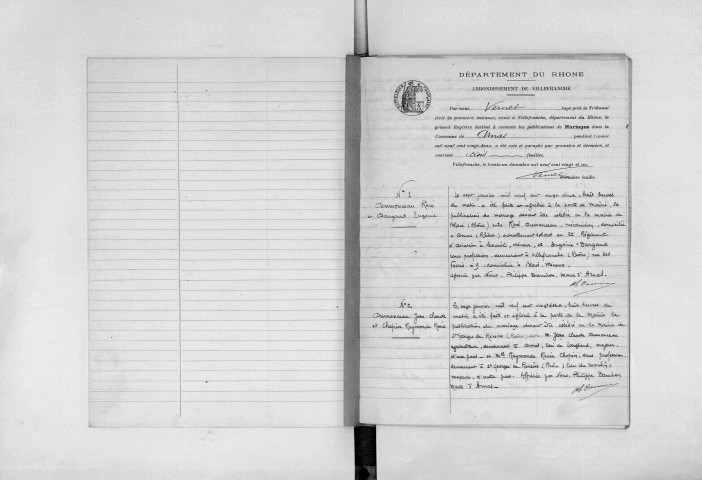 DÉPARTEMENT DU RHONE
ARRONDISSEMENT DE VILLEFRANCHE
Par nous, Vernet Juge près le Tribunal
civil de première instance, séant à Villefranche, département du Rhône, le
présent Registre destiné à recevoir les publications de Mariages dans la
Commune de Arnas pendant l'année
mil neuf cent vingt-deux, a été coté et paraphé par première et dernière, et
contient trois feuilles.
Villefranche, le trente-un décembre mil neuf cent vingt et un.
Vernet
Première feuille
N° 1
Dumonceau René
et Dargaud Eugénie
Le sept janvier mil neuf cent vingt deux, huit heures
du matin a été faite et affichée à la porte de Mairie, la
publication du mariage devant être célébré en la mairie de
(Rhône) entre René Dumonceau, mécanicien, domicilié
à Arnas (Rhône) actuellement soldat au Régiment
d'aviation à mineur, et Eugénie Dargaud
sans profession, demeurant à Villefranche (Rhône) rue des
domiciliée à mineure.
Affichée par Nous, Philippe maire d'Arnas.
N° 2
Dumonceau Jean Claude
et Chopin Raymonde Renée
Le janvier mil neuf cent vingt deux, huit heures du
matin a été faite et affichée à la porte de la Mairie la
publication du mariage devant être célébré en la Mairie de
St Georges de Reneins (Rhône) entre M. Jean Claude Dumonceau
agriculteur, demeurant à Arnas, lieu de Longsard, majeur,
d'une part — et Mlle Raymonde Renée Chopin, sans profession
demeurant à St Georges de Reneins (Rhône) lieu de
mineure, d'autre part. Affichée par Nous, Philippe
Maire d'Arnas.